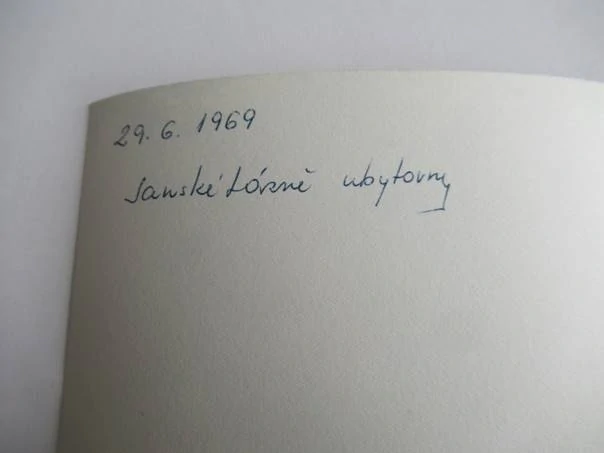 29. 6. 1969
Janské Lázně ubytovny